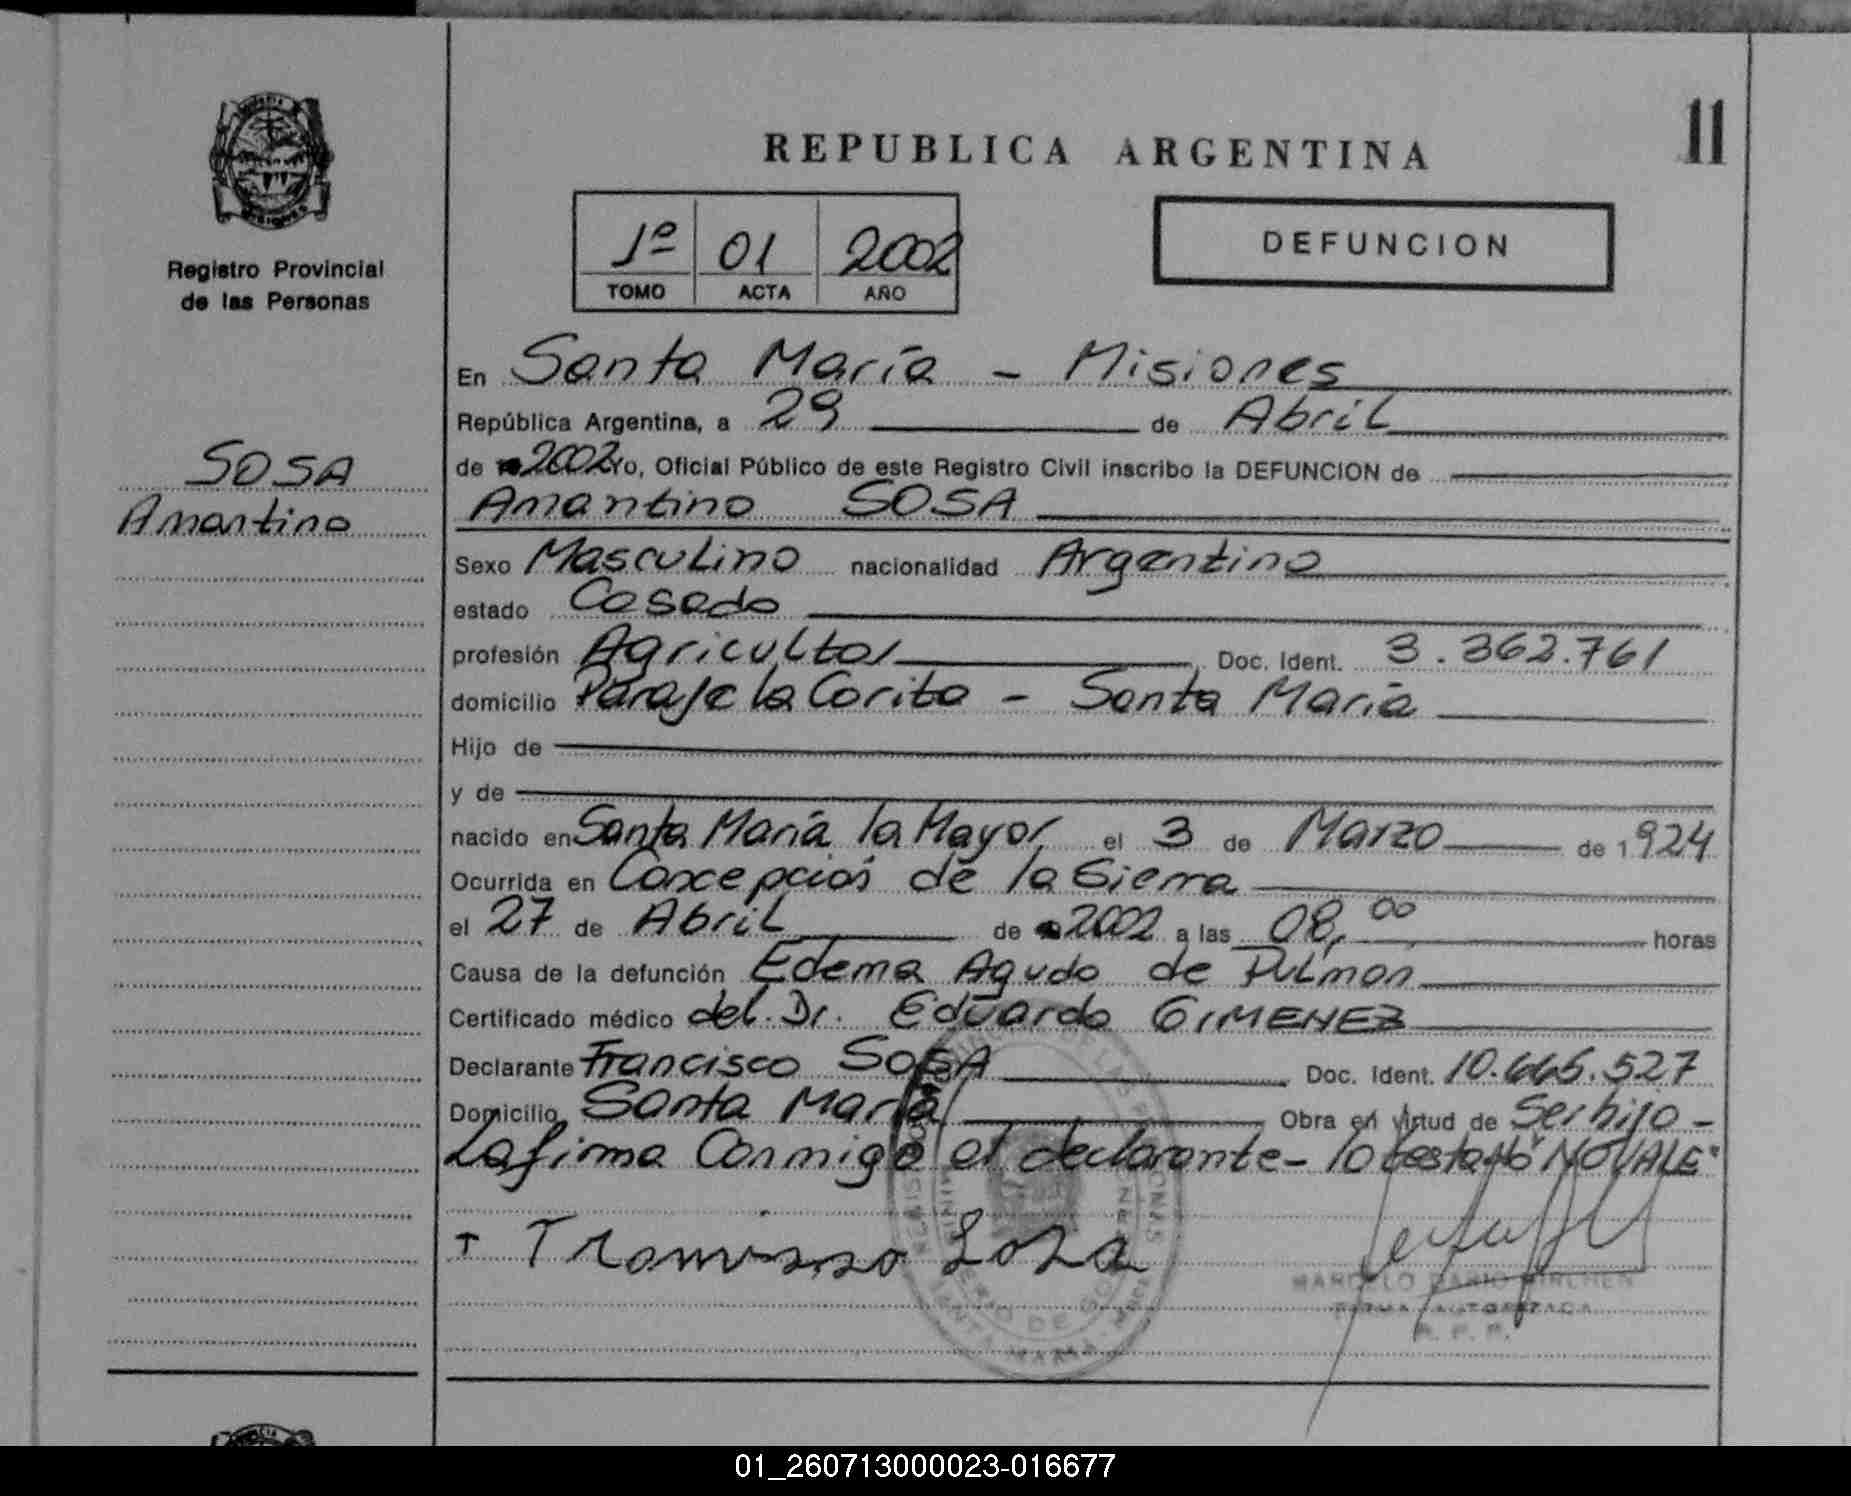 REPUBLICA ARGENTINA
11
MISIONES
Registro Provincial
de las Personas
1º 01 2002
TOMO ACTA AÑO
DEFUNCION
SOSA
Amantino
En Santa María - Misiones
República Argentina, a 29 de Abril
de 2002 Yo, Oficial Público de este Registro Civil inscribo la DEFUNCION de
Amantino SOSA
Sexo Masculino nacionalidad Argentino
estado Casado
profesión Agricultor Doc. Ident. 3.362.761
domicilio Paraje la Corita - Santa María
Hijo de
y de
nacido en Santa María la Mayor el 3 de Marzo de 1924
Ocurrida en Concepción de la Sierra
el 27 de Abril de 2002 a las 08,00 horas
Causa de la defunción Edema Agudo de Pulmon
Certificado médico del Dr. Eduardo GIMENEZ
Declarante Francisco SOSA Doc. Ident. 10.665.527
Domicilio Santa María Obra en virtud de Ser hijo -
La firma Conmigo el declarante - lo testado "NO VALE"
MARCELO DARIO
FIRMA AUTORIZADA
R. P. P.
01_260713000023-016677